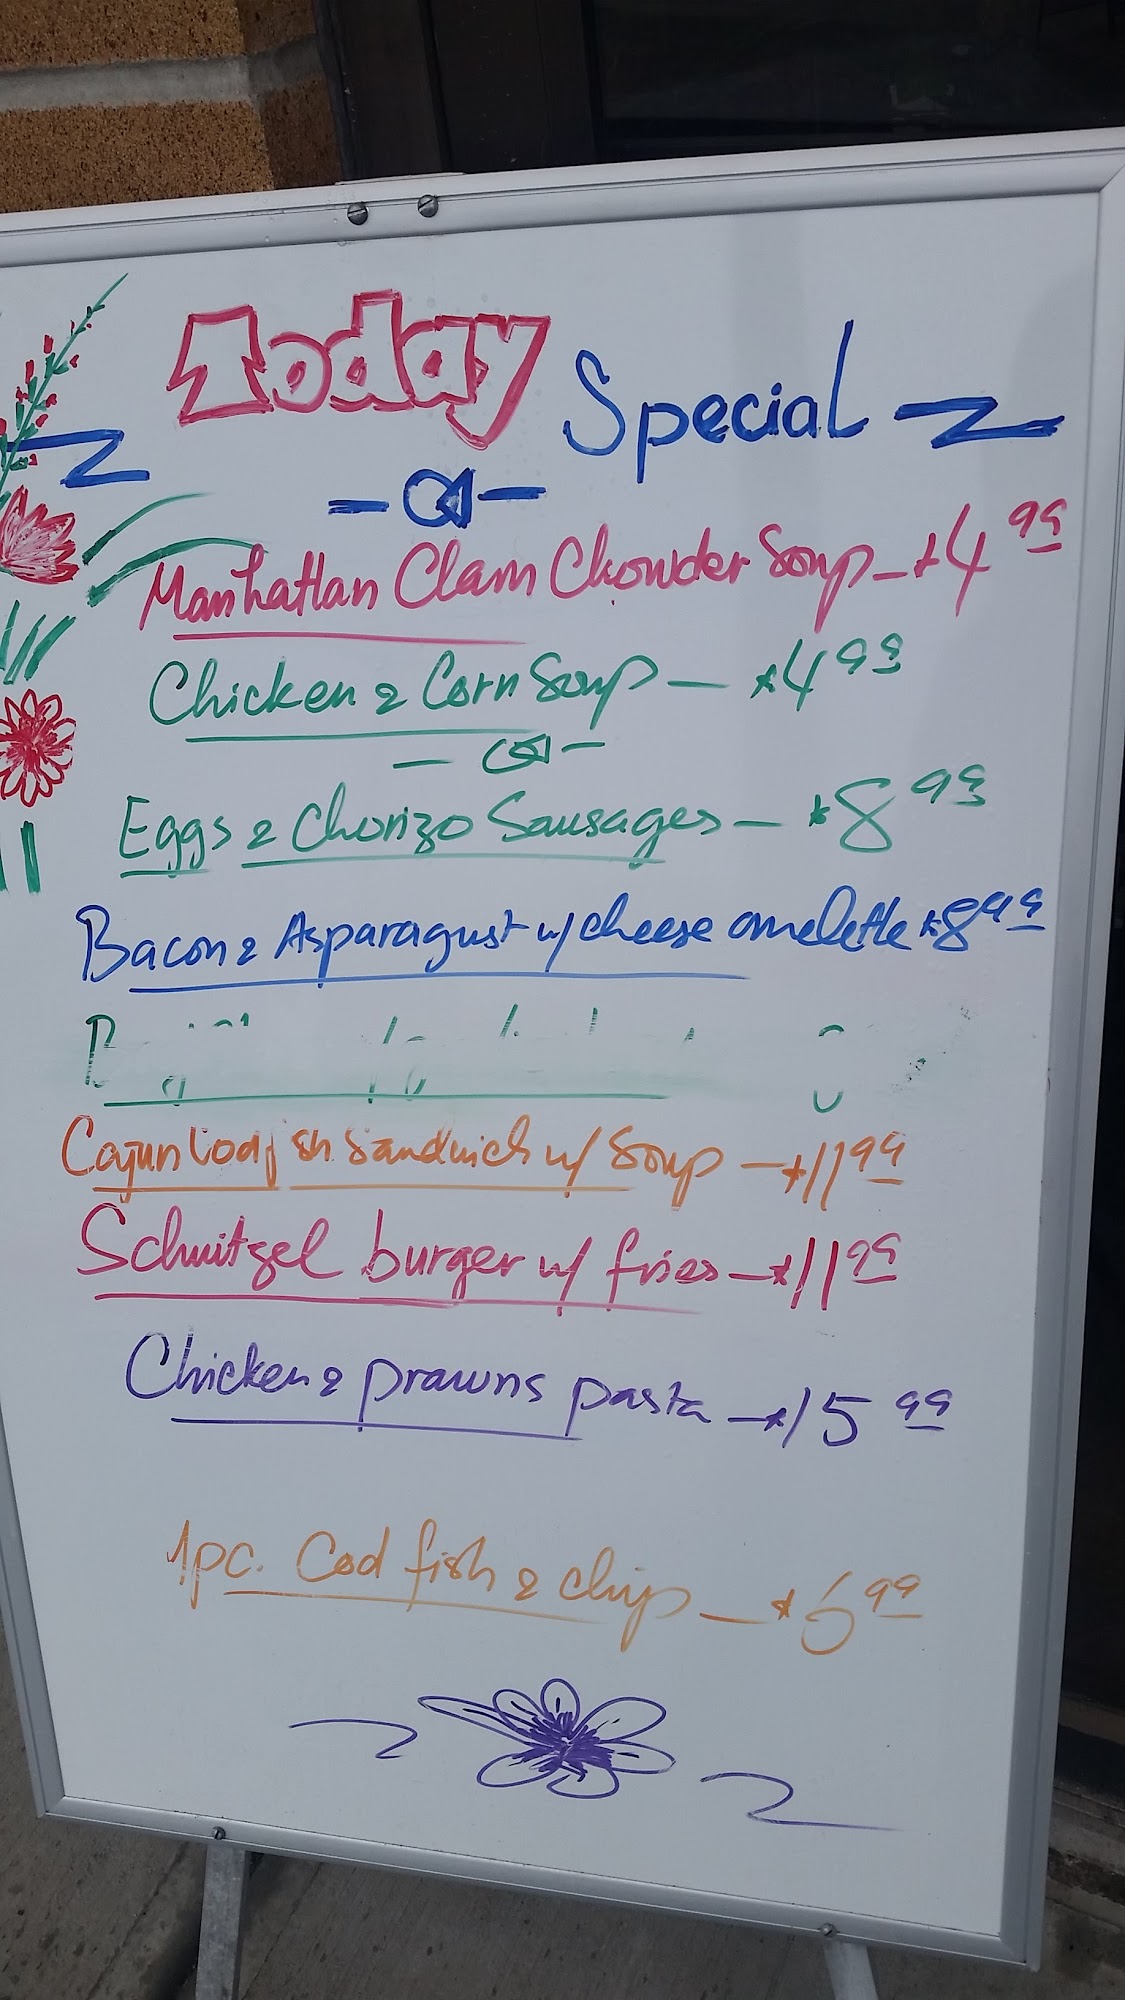 Today Special
Manhattan Clam Chowder Soup - $4.99
Chicken & Corn Soup - $4.99
Eggs & Chorizo Sausages - $8.99
Bacon & Asparagust w/ cheese omelette $8.99
Cajun Cod fish Sandwich w/ Soup - $11.99
Schnitzel burger w/ fries - $11.99
Chicken & prawns pasta - $15.99
1pc. Cod fish & chip - $6.99